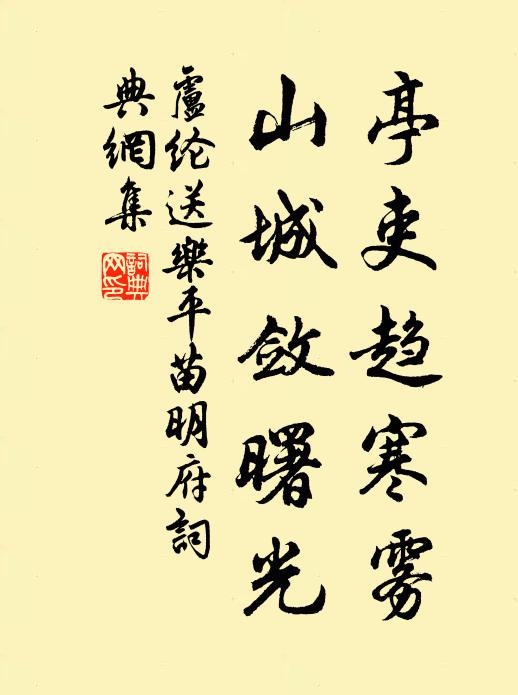 亭吏趋寒雾
山城敛曙光
盧纶送樂平苗明府詞
典網集
詞典网印